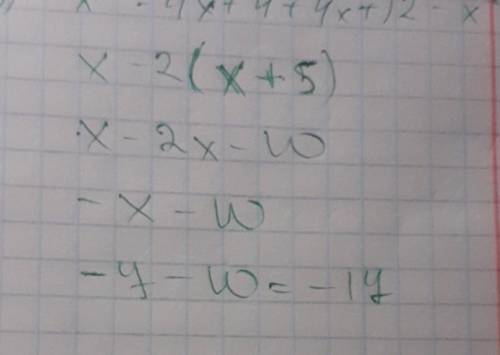 x - 4x + 4 + 4x + 12 - x
x - 2(x + 5)
x - 2x - 10
- x - 10
- 4 - 10 = - 14